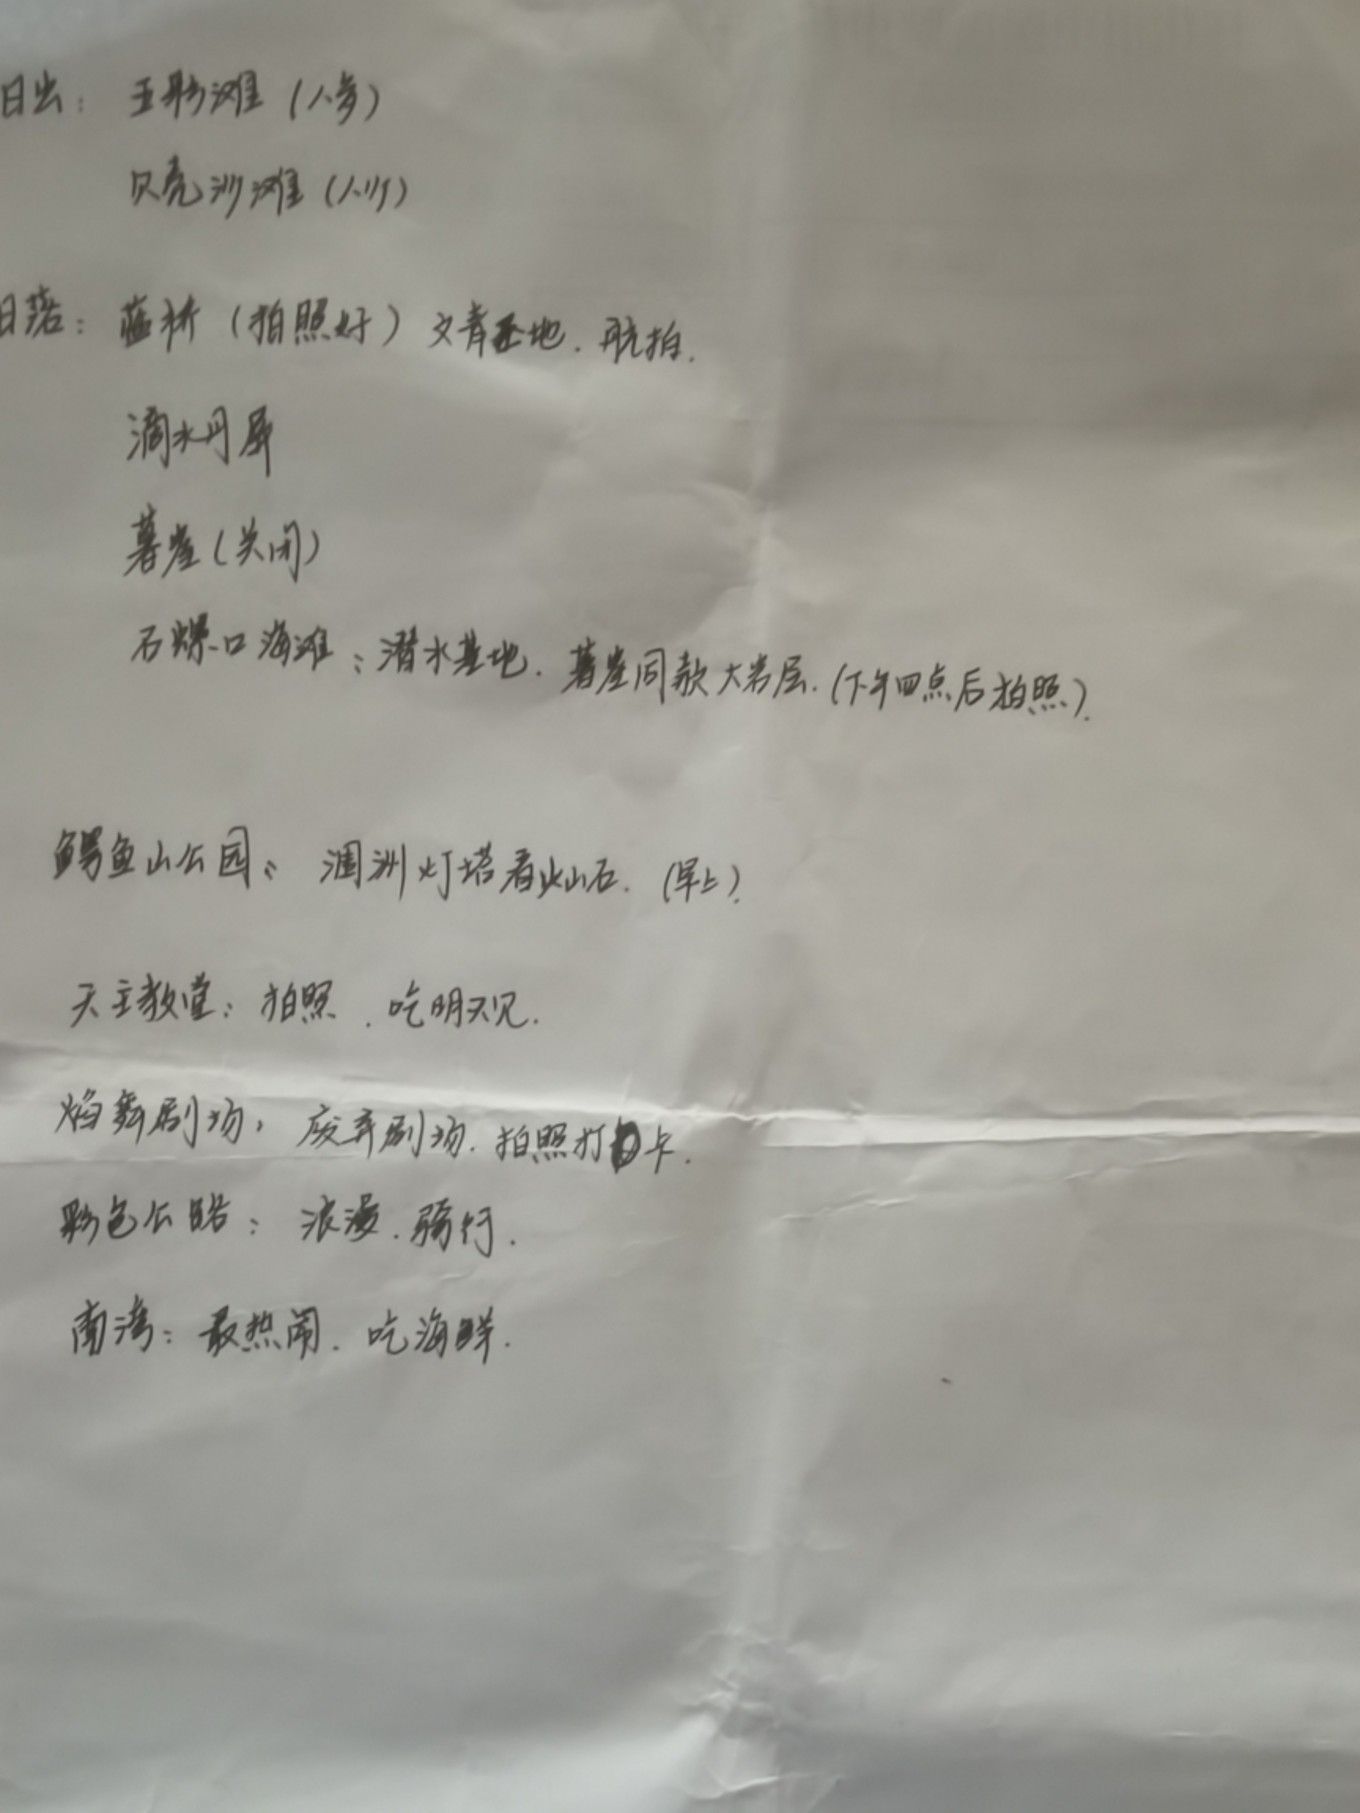 日出：五彩滩（人多）
贝壳沙滩（人少）
日落：蓝桥（拍照好）文青圣地．航拍．
滴水丹屏
暮崖（关闭）
石螺口海滩：潜水基地．暮崖同款大岩层．（下午四点后拍照）．
鳄鱼山公园：涠洲灯塔看火山石．（早上）．
天主教堂：拍照．吃明天见．
焰舞剧场：废弃剧场．拍照打卡．
彩色公路：浪漫．骑行．
南湾：最热闹．吃海鲜．